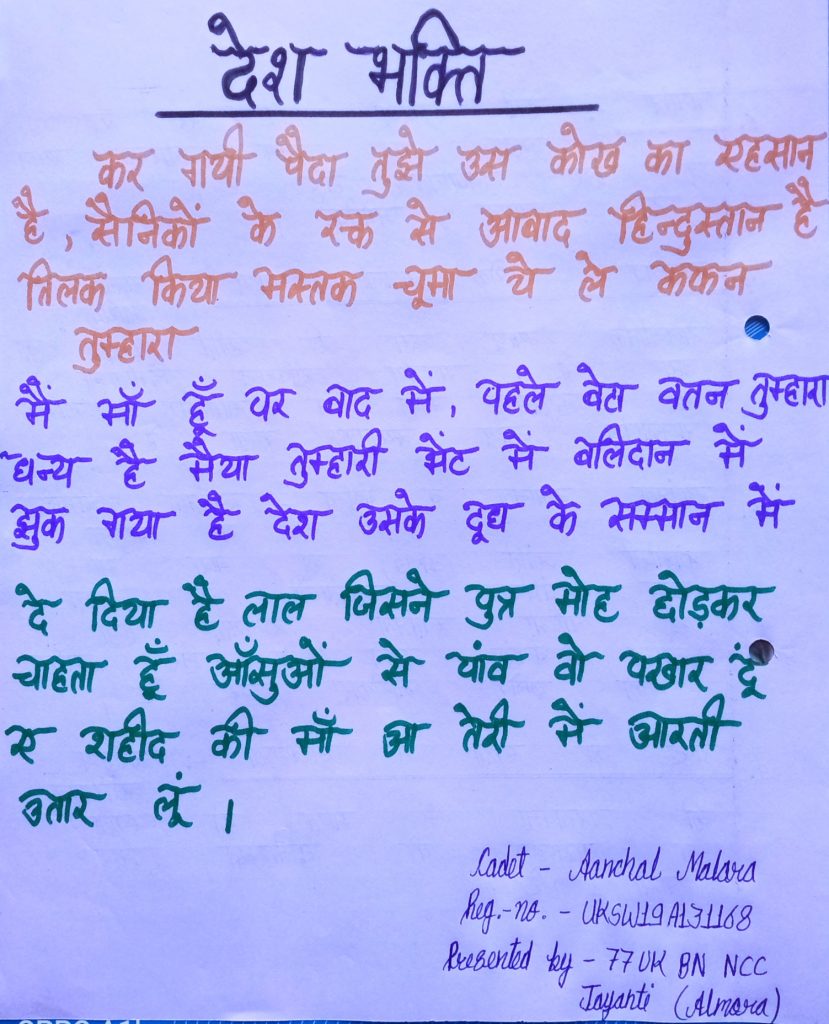 देश भक्ति
कर गयी पैदा तुझे उस कोख का एहसान
है, सैनिकों के रक्त से आवाद हिन्दुस्तान है
तिलक किया मस्तक चूमा ये ले कफन
तुम्हारा
मैं माँ हूँ पर वाद में, पहले वेटा वतन तुम्हारा
धन्य है मैया तुम्हारी भेंट में वलिदान में
झुक गया है देश उसके दूध के सम्मान में
दे दिया है लाल जिसने पुत्र मोह छोड़कर
चाहता हूँ आँसुओं से पांव वो पखार दूं
ए शहीद की माँ आ तेरी में आरती
उतार लूं ।
Cadet - Aanchal Malara
Reg.-no. - UKSW19A131168
Presented by - 77 UK BN NCC
Jayanti (Almora)